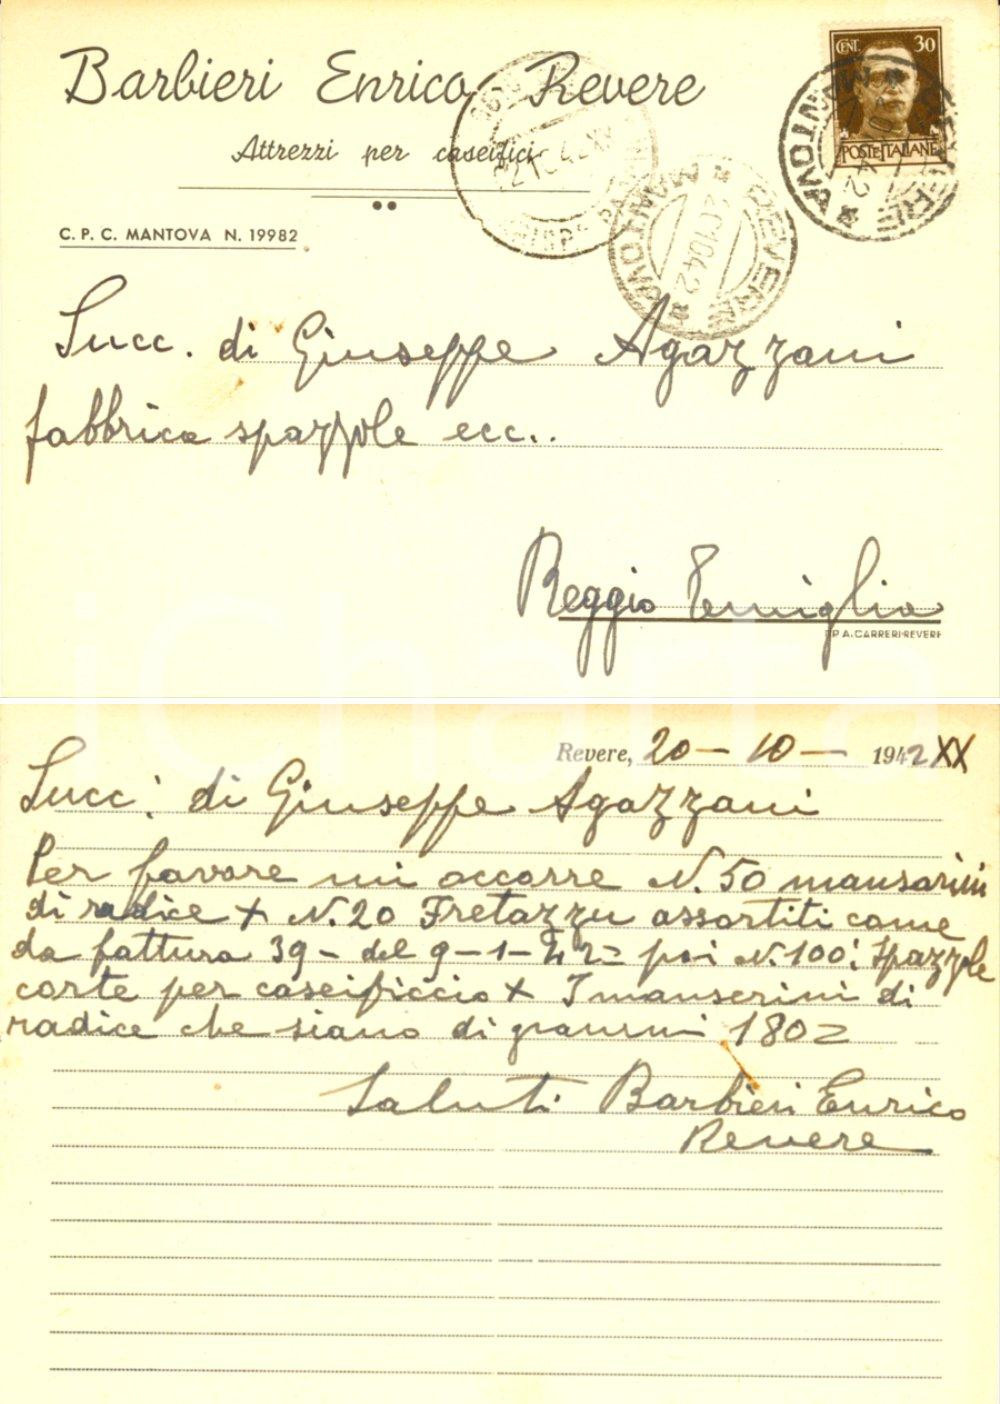 Barbieri Enrico - Revere
Attrezzi per caseifici
C. P. C. MANTOVA N. 19982
CENT. 30
POSTE ITALIANE
REVERE * MANTOVA *
REVERE * MANTOVA *
20 10 42
Succ. di Giuseppe Agazzani
fabbrica spazzole ecc..
Reggio Emiglia
TIP. A. CARRERI-REVERE
Revere, 20 - 10 - 1942 XX
Succ: di Giuseppe Agazzani
Per favore mi occorre N. 50 mansarini
di radice + N. 20 Fretazzu assortiti come
da fattura 39 - del 9-1-42= poi N. 100: Spazzole
corte per caseificcio + I manserini di
radice che siano di grammi 180=
Saluti Barbieri Enrico
Revere